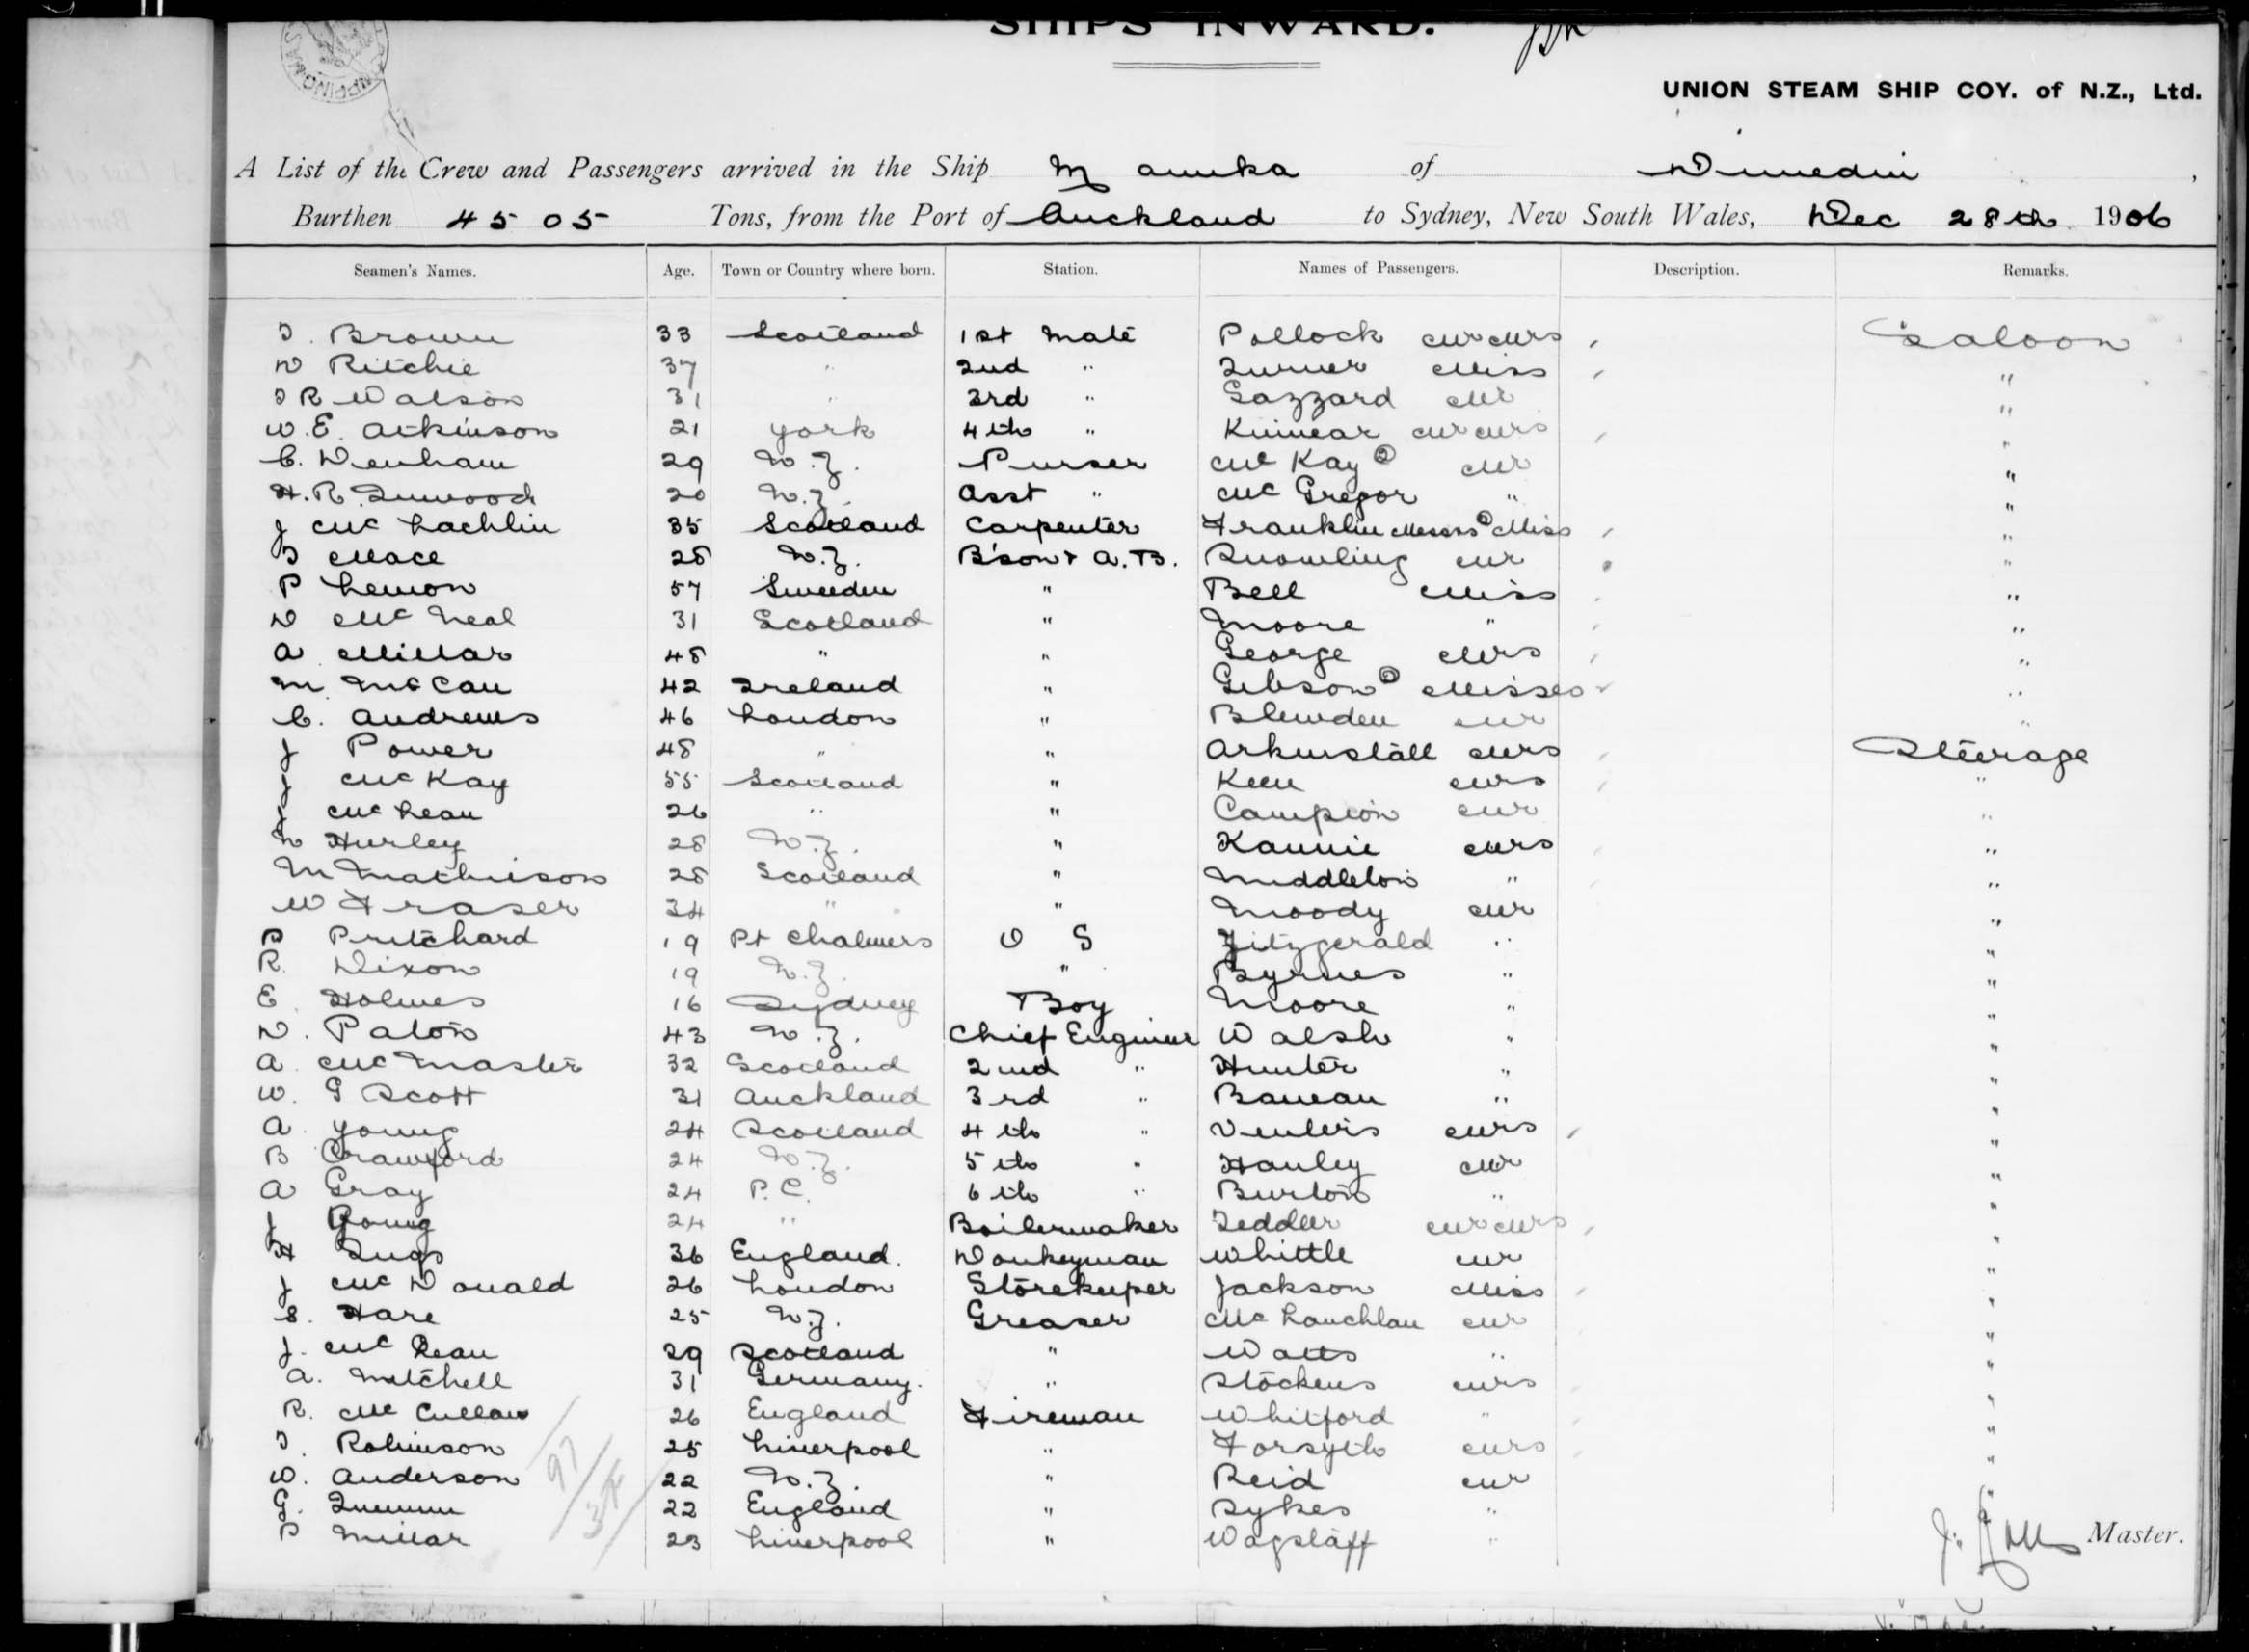 SHIPS INWARD.
UNION STEAM SHIP COY. of N.Z., Ltd.
A List of the Crew and Passengers arrived in the Ship Manuka of Dunedin,
Burthen 4505 Tons, from the Port of Auckland to Sydney, New South Wales, Dec 28th 1906
Seamen's Names. Age. Town or Country where born. Station. Names of Passengers. Description. Remarks.
T. Brown 33 Scotland 1st Mate Pollock Mr Mrs Saloon
D Ritchie 37 " 2nd " Turner Miss "
T R Watson 31 " 3rd " Gazzard Mr "
W. E. Atkinson 21 York 4th " Kinnear Mr Mrs "
C. Denham 29 N.Z. Purser McKay Mr "
H. R. Inwood 20 N.Z. Asst " McGregor " "
J McLachlin 35 Scotland Carpenter Franklin Messrs Miss "
T Mace 28 N.Z. B'son & A.B. Snowling Mr "
P Lemon 57 Sweeden " Bell Miss "
D McNeal 31 Scotland " Moore " "
A Millar 48 " " George Mrs "
M McCan 42 Ireland " Gibson Misses "
C. Andrews 46 London " Blewden Mr "
J Power 48 " " Arkinstall Mrs Steerage
J McKay 55 Scotland " Keen Mrs "
J McLean 26 " " Campion Mr "
D Hurley 28 N.Z. " Kannie Mrs "
M Mathieson 28 Scotland " Middleton " "
W Fraser 34 " " Moody Mr "
P Pritchard 19 Pt Chalmers O S Fitzgerald " "
R. Dixon 19 N.Z. " Byrnes " "
E Holmes 16 Sydney Boy Moore " "
D. Paton 43 N.Z. Chief Engineer Walsh " "
A McMaster 32 Scotland 2nd " Hunter " "
W. G Scott 31 Auckland 3rd " Banean " "
A Young 24 Scotland 4th " Venters Mrs "
B Crawford 24 N.Z. 5th " Hanley Mr "
A Gray 24 P.C. 6th " Burton " "
J Young 24 " Boilermaker Teddler Mr Mrs "
H 36 England. Donkeyman Whittle Mr "
J McDonald 26 London Storekeeper Jackson Miss "
S. Hare 25 N.Z. Greaser McLauchlan Mr "
J. McLean 29 Scotland " Watts " "
A. Mitchell 31 Germany. " Stockens Mrs "
R. McCullam 26 England Fireman Whitford " "
T. Robinson 25 Liverpool " Forsyth Mrs "
W. Anderson 22 N.Z. " Reid Mr "
G. 22 England " Sykes " "
P Millar 23 Liverpool " Wagstaff "
97/34
Master.